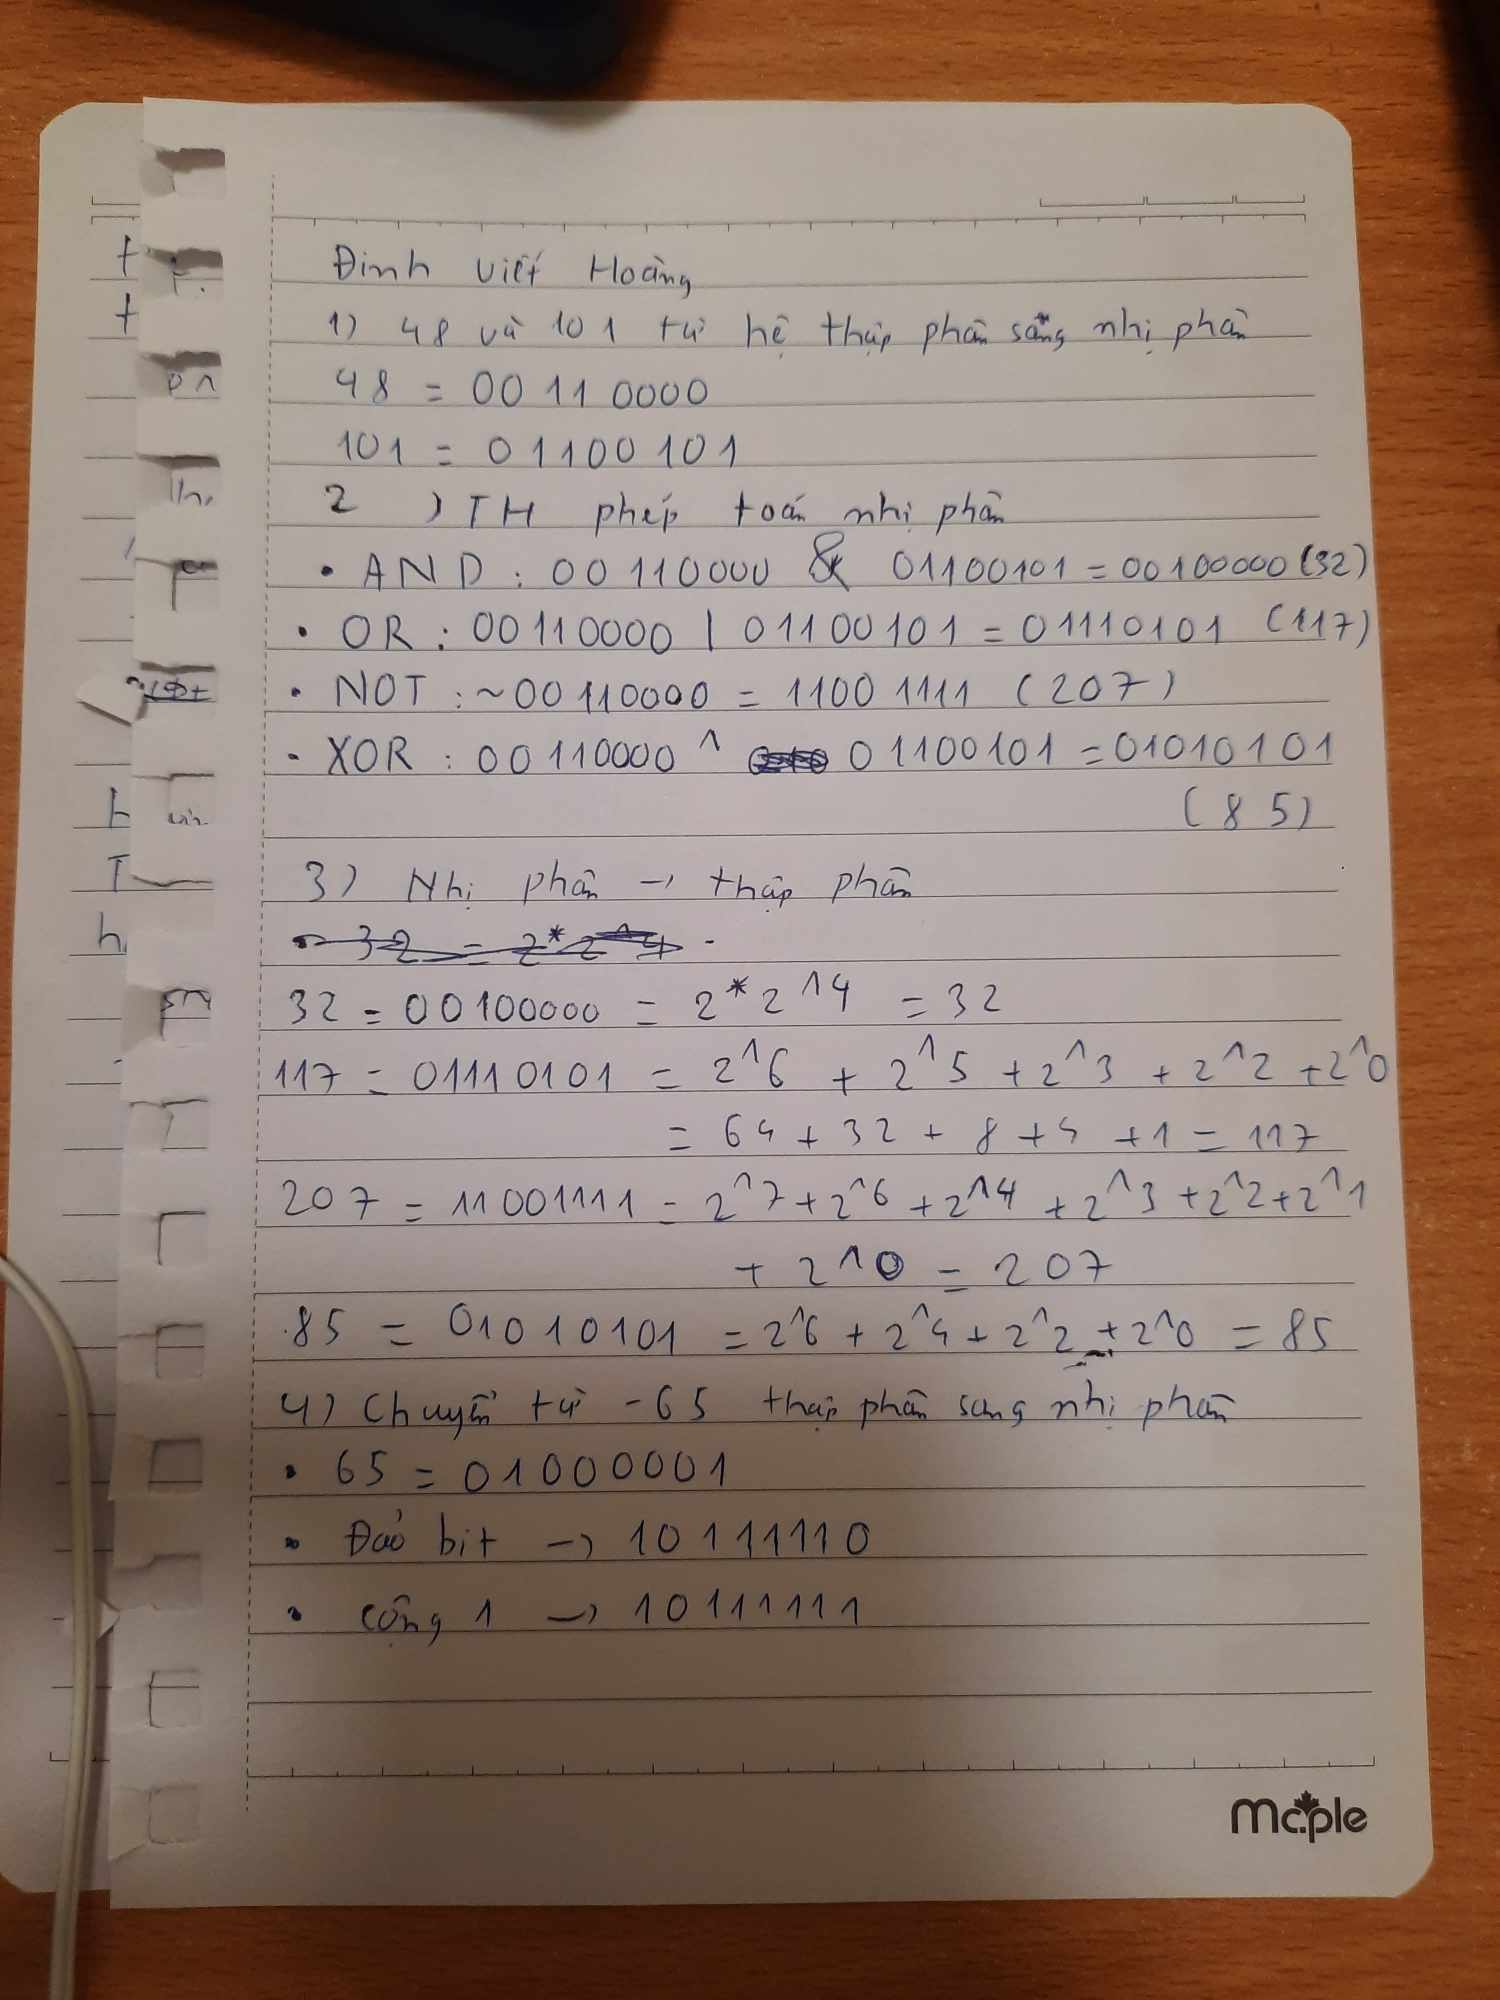 Đinh Viết Hoàng
1) 48 và 101 từ hệ thập phân sang nhị phân
48 = 00110000
101 = 01100101
2 ) TH phép toán nhị phân
• AND : 00110000 & 01100101 = 00100000 (32)
• OR : 00110000 | 01100101 = 01110101 (117)
• NOT : ~00110000 = 11001111 (207)
- XOR : 00110000 ^ 01100101 = 01010101
(85)
3) Nhị phân -> thập phân
32 = 2*2^4
32 = 00100000 = 2*2^4 = 32
117 = 01110101 = 2^6 + 2^5 + 2^3 + 2^2 + 2^0
= 64 + 32 + 8 + 4 + 1 = 117
207 = 11001111 = 2^7 + 2^6 + 2^4 + 2^3 + 2^2 + 2^1
+ 2^0 = 207
.85 = 01010101 = 2^6 + 2^4 + 2^2 + 2^0 = 85
4) Chuyển từ -65 thập phân sang nhị phân
• 65 = 01000001
• Đảo bit -> 10111110
• cộng 1 -> 10111111
maple